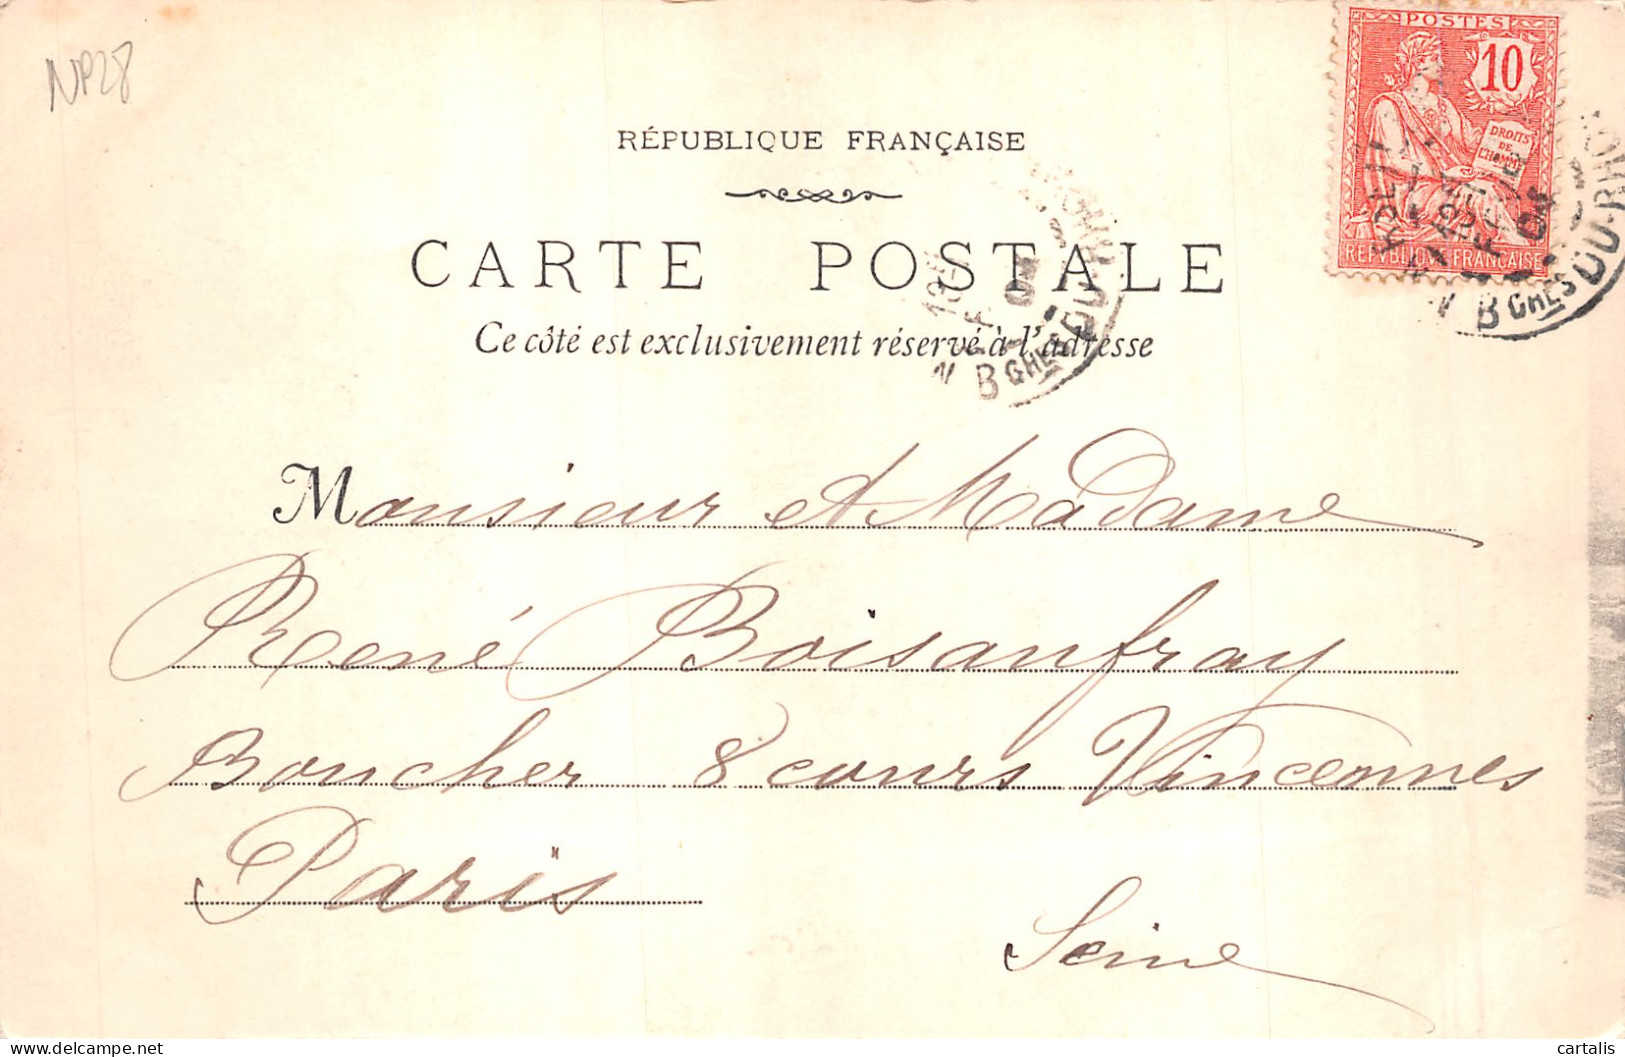 NP28
POSTES
10
DROITS
DE
L'HOMME
REPUBLIQUE FRANÇAISE
RÉPUBLIQUE FRANÇAISE
CARTE POSTALE
Ce côté est exclusivement réservé à l'adresse
Monsieur et Madame
René Boisanfray
Boucher 8 cours Vincennes
Paris
Seine
Bches DU RHÔ
Bches DU RHÔ
delcampe.net
cartalis